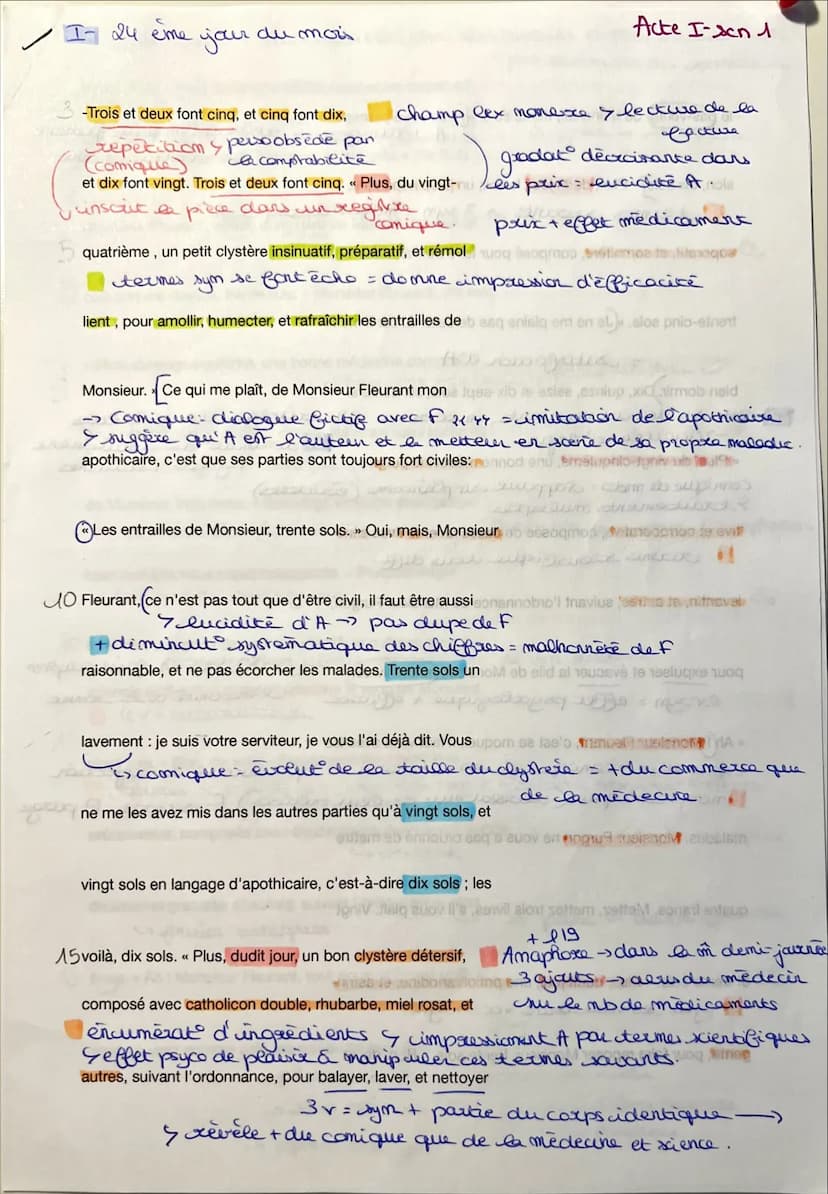 I- 24 ème jour du mois
Acte I-scn 1
3 -Trois et deux font cinq, et cinq font dix,
champ lex monexe > lecture de la
facture
répétition ↳ perso obsédé par
(comique) la comptabilité
gradat° décroissante dans
et dix font vingt. Trois et deux font cinq. « Plus, du vingt-
les prix = lucidité A.
inscrit la pièce dans un registre
comique.
prix + effet médicament
5 quatrième , un petit clystère insinuatif, préparatif, et rémol
termes sym se font écho = donne impression d'éfficacité
lient , pour amollir, humecter, et rafraîchir les entrailles de
Monsieur. » [Ce qui me plaît, de Monsieur Fleurant mon
→ Comique: dialogue fictif avec F « » = imitation de l'apothicaire
↳ suggère qu'A est l'auteur et le metteur en scène de sa propre maladie.
apothicaire, c'est que ses parties sont toujours fort civiles:
«Les entrailles de Monsieur, trente sols. » Oui, mais, Monsieur
10 Fleurant, (ce n'est pas tout que d'être civil, il faut être aussi
↳ lucidité d'A → pas dupe de F
+ diminut° systématique des chiffres = malhonnêté de F
raisonnable, et ne pas écorcher les malades. Trente sols un
lavement : je suis votre serviteur, je vous l'ai déjà dit. Vous
↳ comique = évolut° de la taille du clystère = + du commerce que
de la médecine.
ne me les avez mis dans les autres parties qu'à vingt sols, et
vingt sols en langage d'apothicaire, c'est-à-dire dix sols ; les
+ l 19
15 voilà, dix sols. « Plus, dudit jour, un bon clystère détersif,
Anaphore → dans la m̂ demi-journée
3 ajouts → du médecin
composé avec catholicon double, rhubarbe, miel rosat, et
sur le nb de médicaments
énumérat° d'ingrédients ↳ impressionnent A par termes scientifiques
↳ effet psyco de plaisir à manipuler ces termes savants.
autres, suivant l'ordonnance, pour balayer, laver, et nettoyer
3 v = sym + partie du corps identique →
↳ révèle + du comique que de la médecine et science.